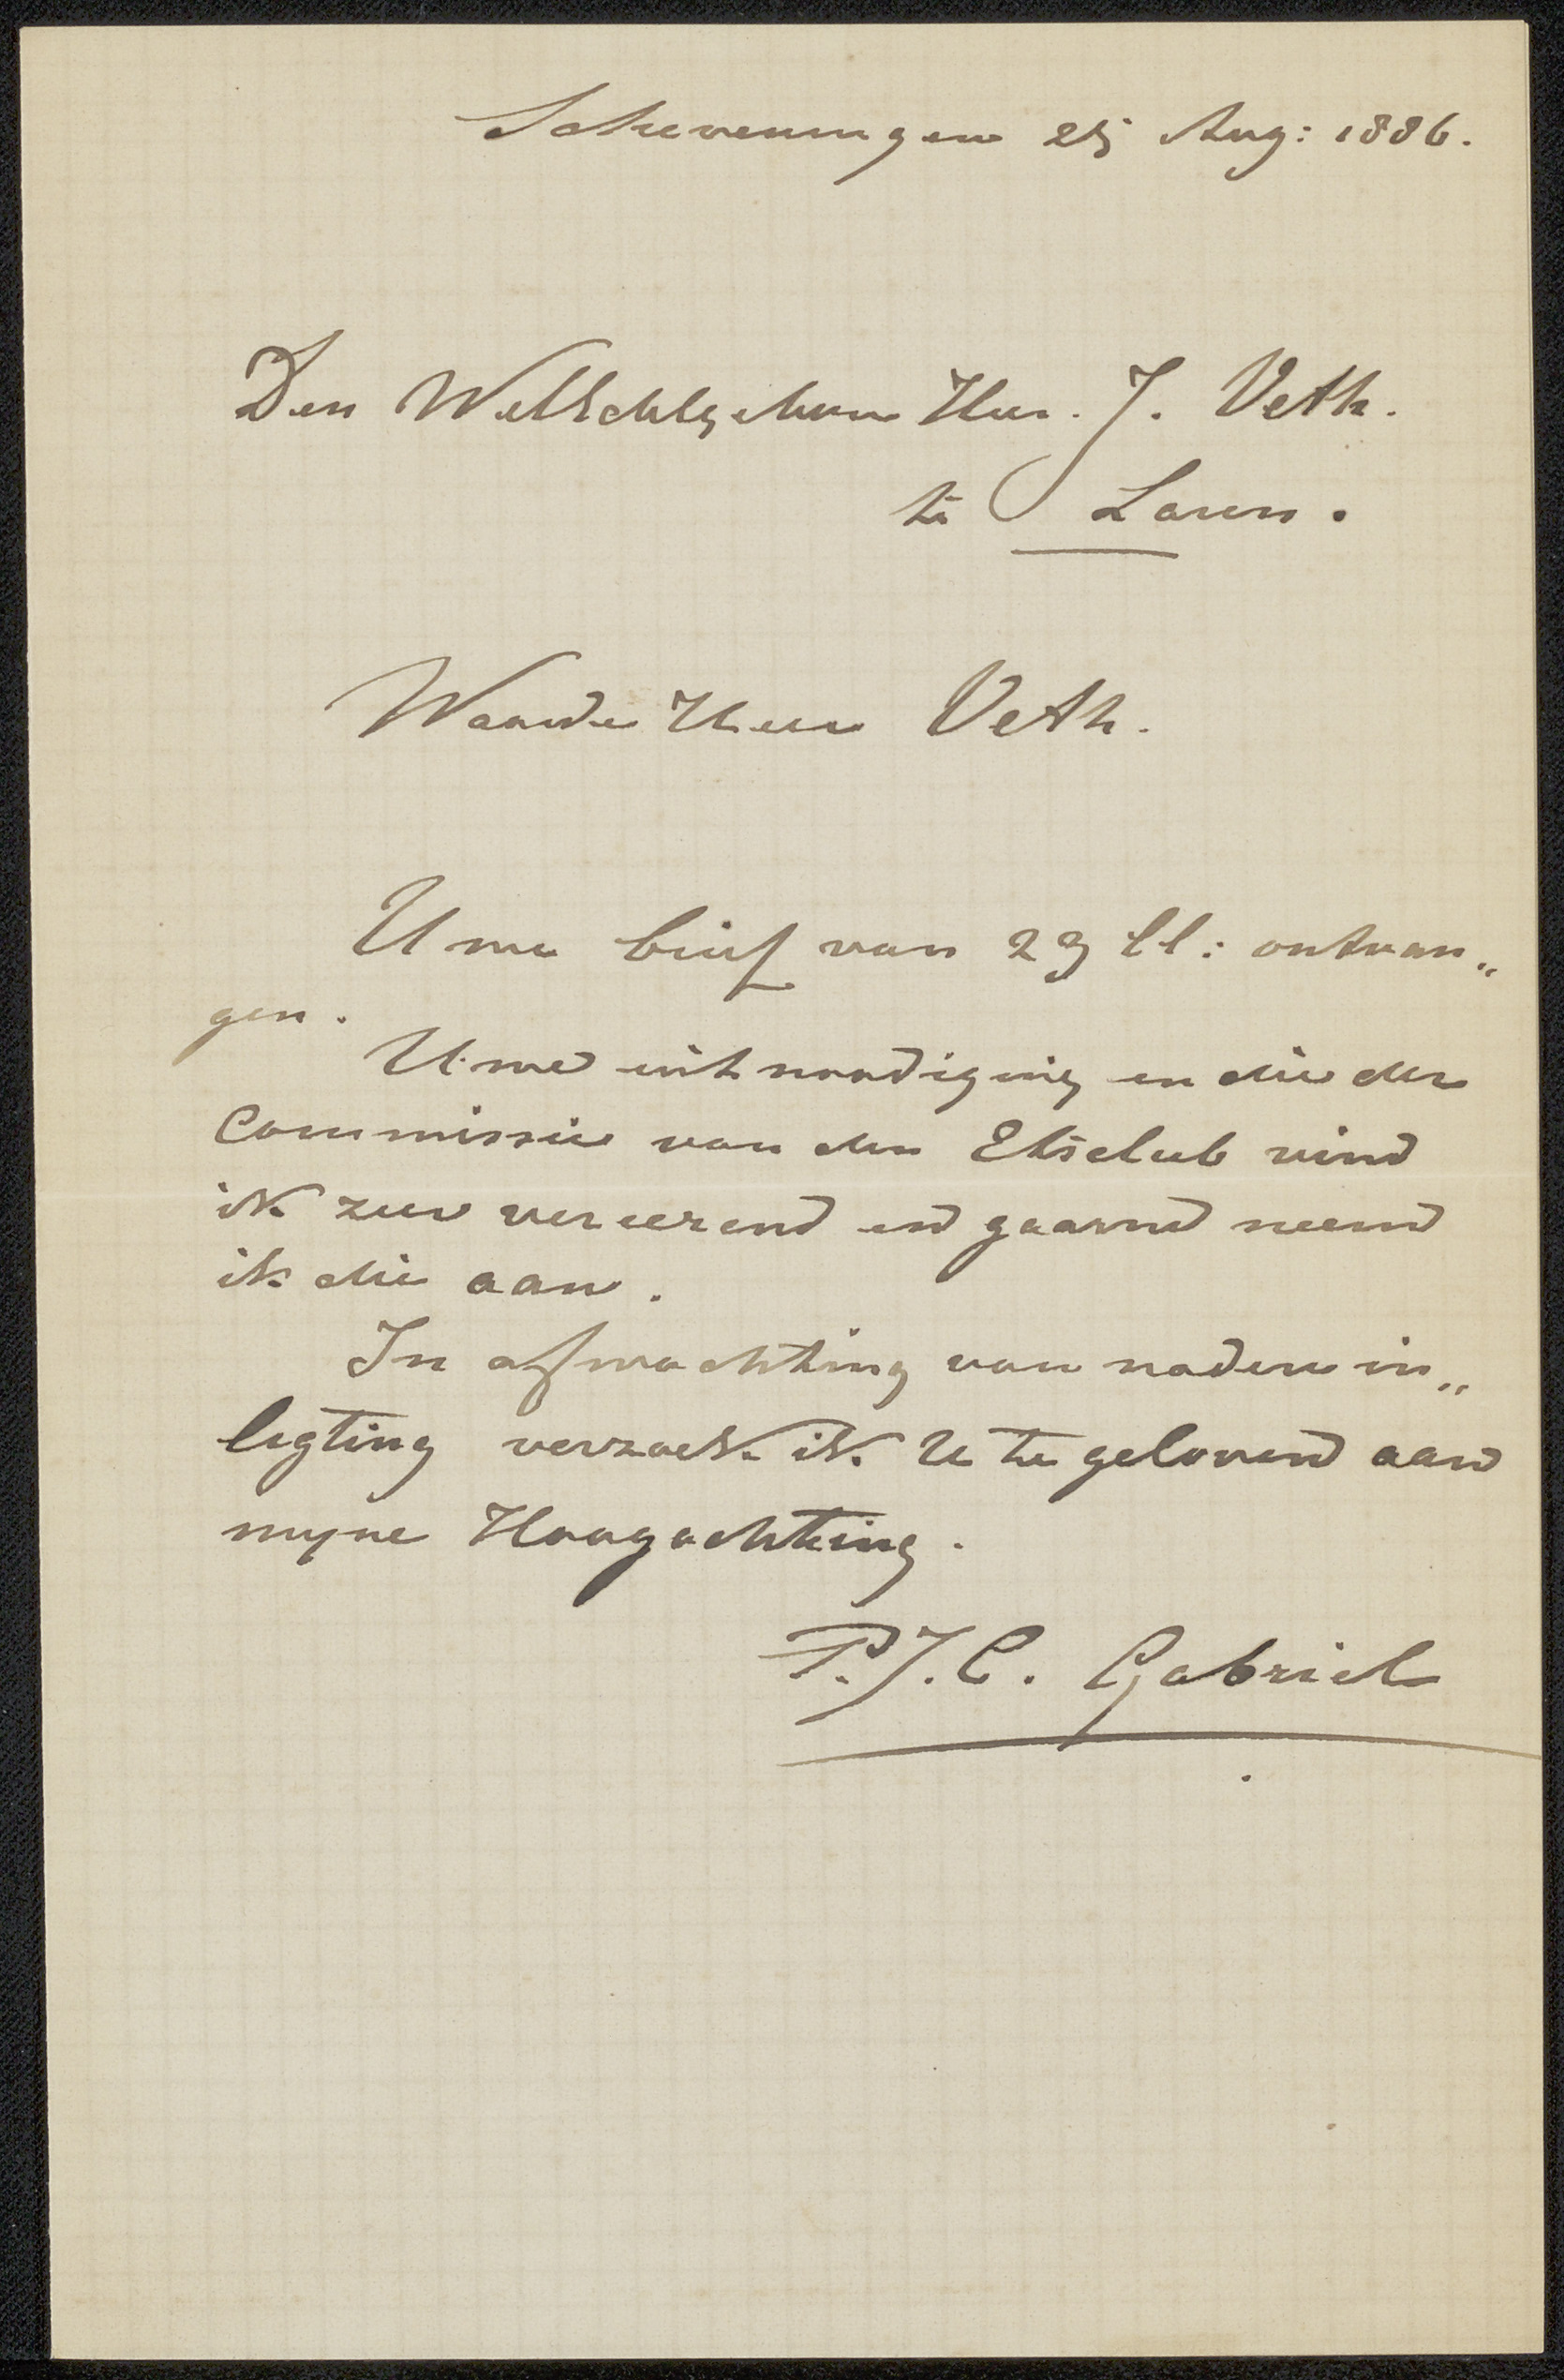 Scheveningen 25 Aug: 1886.
Den WelEdelgeboren Heer. J. Veth.
te Laren.
Waarde Heer Veth.
Uwe brief van 23 ll: ontvan„
gen.
Uwe uitnoodiging en die der
Commissie van den Etsclub vind
ik zeer vereerend en gaarne neem
ik die aan.
In afwachting van nadere in„
ligting verzoek ik U te gelooven aan
myne Hoogachting.
P.J.C. Gabriel